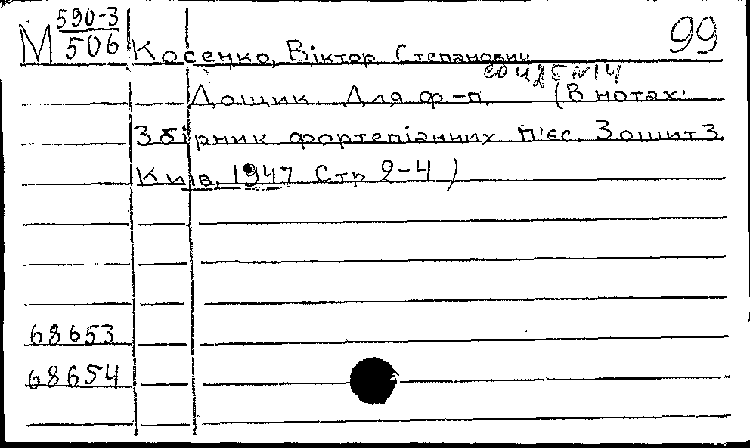 М 590-3/506 Косенко, Віктор Степанович 99
Дощик. Для ф-п. (В нотах:
Збірник фортепіанних п'єс. Зошит 3.
Київ, 1947 Стр. 2-4)
68653
68654